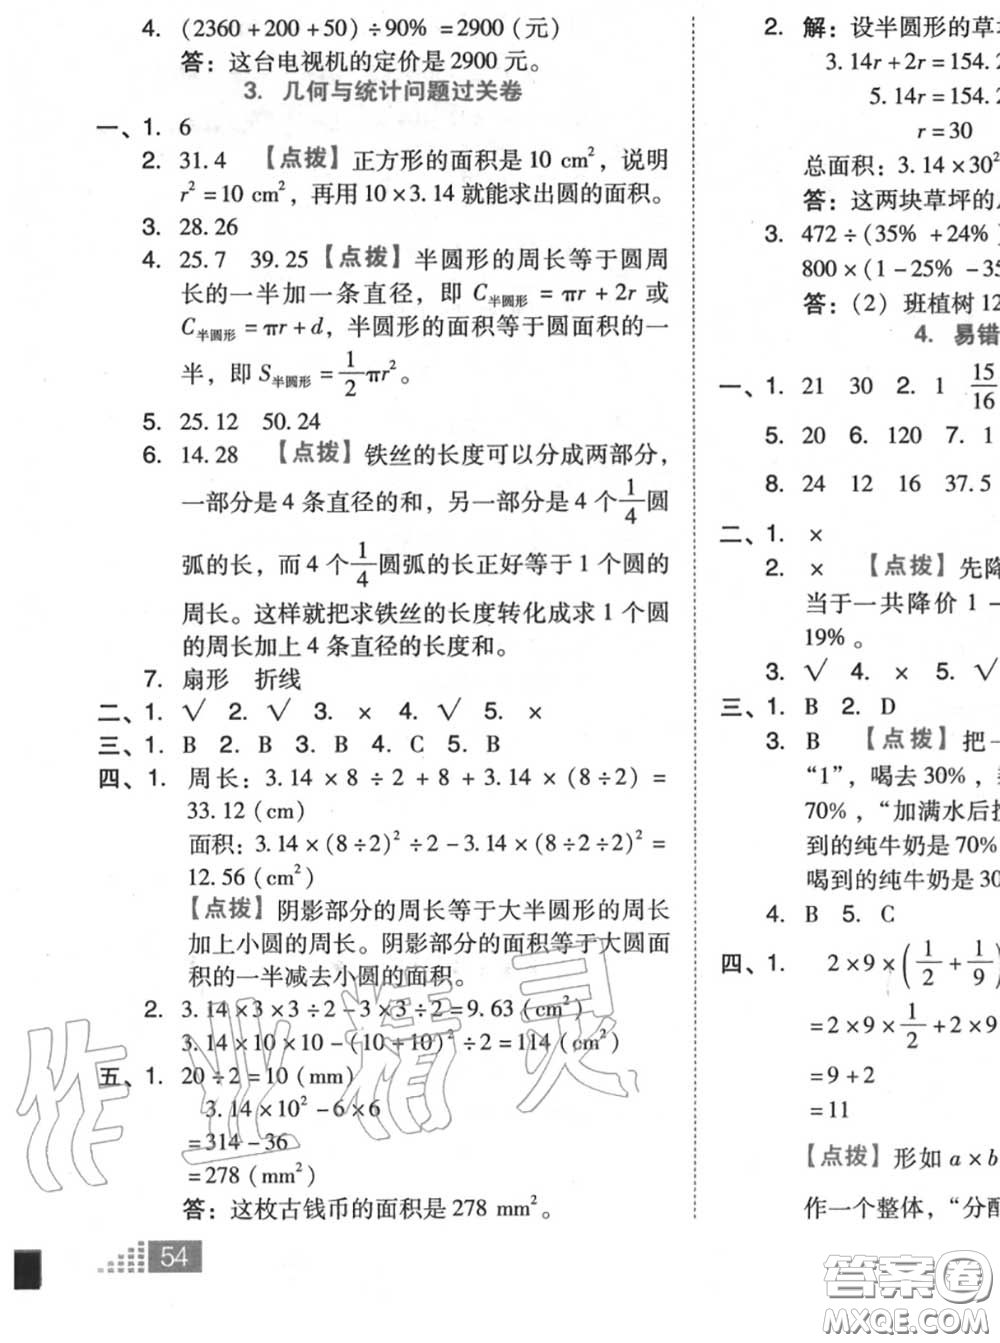 4. (2360+200+50)÷90% =2900(元)
答：这台电视机的定价是 2900 元。
3. 几何与统计问题过关卷
一、1. 6
2. 31.4 【点拨】正方形的面积是 10 cm²，说明
r²=10 cm²，再用 10×3.14 就能求出圆的面积。
3. 28.26
4. 25.7 39.25【点拨】半圆形的周长等于圆周
长的一半加一条直径，即 C半圆形 = πr+2r 或
C半圆形=πr+d，半圆形的面积等于圆面积的一
半，即 S半圆形=1/2πr²。
5. 25.12 50.24
6. 14.28 【点拨】铁丝的长度可以分成两部分，
一部分是 4 条直径的和，另一部分是 4 个1/4圆
弧的长，而 4 个1/4圆弧的长正好等于 1 个圆的
周长。这样就把求铁丝的长度转化成求 1 个圆
的周长加上 4 条直径的长度和。
7. 扇形 折线
二、1. √ 2. √ 3. × 4. √ 5. ×
三、1. B 2. B 3. B 4. C 5. B
四、1. 周长：3.14×8÷2+8+3.14×(8÷2)=
33.12(cm)
面积：3.14×(8÷2)²÷2-3.14×(8÷2÷2)²=
12.56(cm²)
【点拨】阴影部分的周长等于大半圆形的周长
加上小圆的周长。阴影部分的面积等于大圆面
积的一半减去小圆的面积。
2. 3.14×3×3÷2-3×3÷2=9.63(cm²)
3.14×10×10-(10+10)²÷2=114(cm²)
五、1. 20÷2=10(mm)
3.14×10²-6×6
=314-36
=278(mm²)
答：这枚古钱币的面积是 278 mm²。
54
作业精灵
2. 解：设半圆形的草坪
3.14r+2r=154.2
5.14r=154.2
r=30
总面积：3.14×30²
答：这两块草坪的
3. 472÷(35% +24%)
800×(1-25% -35
答：(2) 班植树 12
4. 易错
一、1. 21 30 2. 1 15/16
5. 20 6. 120 7. 1
8. 24 12 16 37.5
二、1. ×
2. × 【点拨】先降
当于一共降价 1-
19%。
3. √ 4. × 5. √
三、1. B 2. D
3. B 【点拨】把一
“1”，喝去 30%，
70%，“加满水后
到的纯牛奶是 70%
喝到的纯牛奶是 30
4. B 5. C
四、1. 2×9×(1/2+1/9)
=2×9×1/2+2×9
=9+2
=11
【点拨】形如 a×b
作一个整体，“分配
答案圈
MXQE.COM